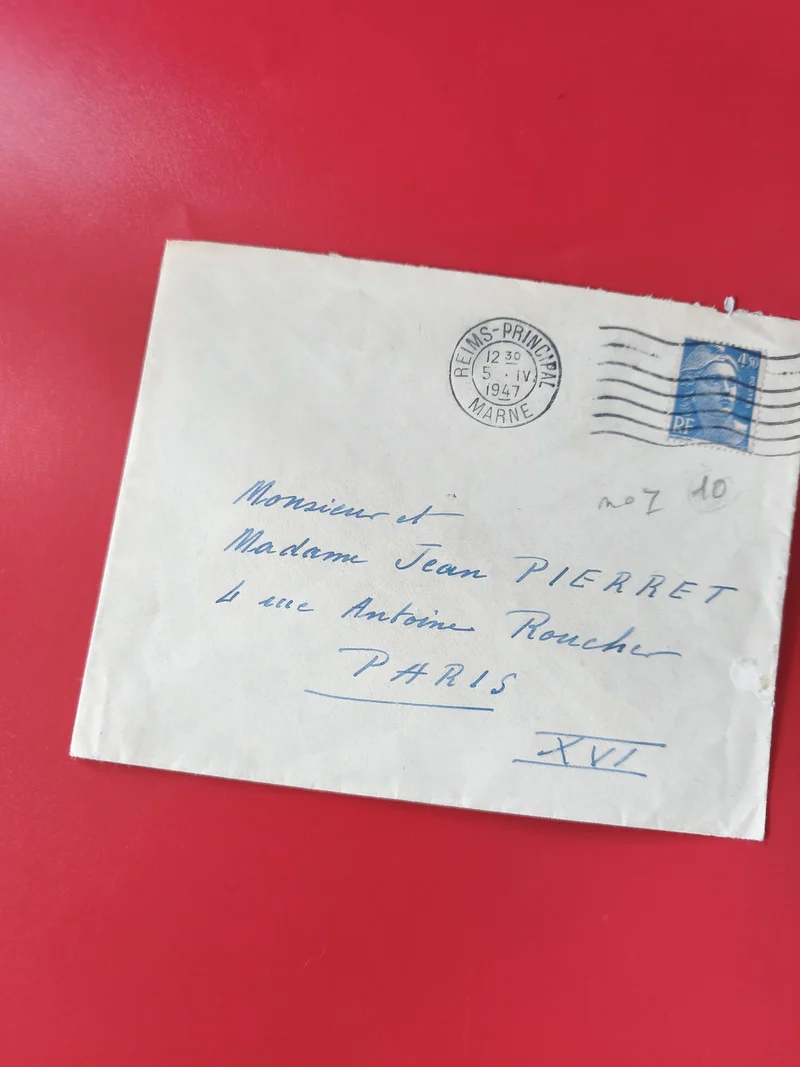 REIMS-PRINCIPAL
12 30
5 · IV
1947
MARNE
4,50
RF
10
Monsieur et
Madame Jean PIERRET
4 rue Antoine Roucher
PARIS
XVI